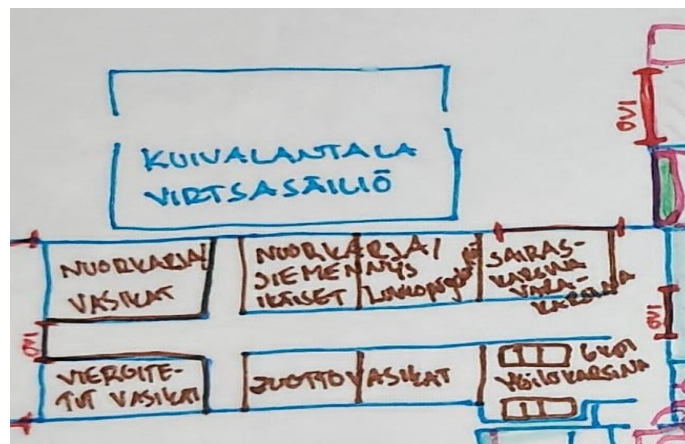 KUIVALANTALA
VIRTSASÄILIÖ
OVI
NUORKARJA/
VASIKAT
NUORKARJA/
SIEMENNYS
IKÄISET
SAIRAS-
KARSINA
VARA-
KARSINA
OVI
OVI
VIEROITE-
TUT VASIKAT
JUOTTOVASIKAT
6 KPL
YKSILÖKARSINA